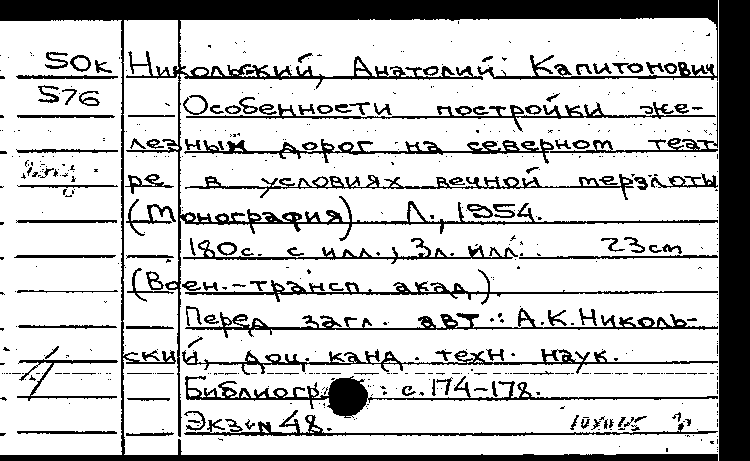 50к Никольский, Анатолий Капитонович
576 Особенности постройки же-
лезных дорог на северном теат-
ре в условиях вечной мерзлоты
(Монография). Л., 1954.
180с. с илл.; 3л. илл. 23см
(Воен.-трансп. акад.).
Перед загл. авт.: А.К.Николь-
ский, доц. канд. техн. наук.
Библиогр.: с.174-178.
Экз.N 48.